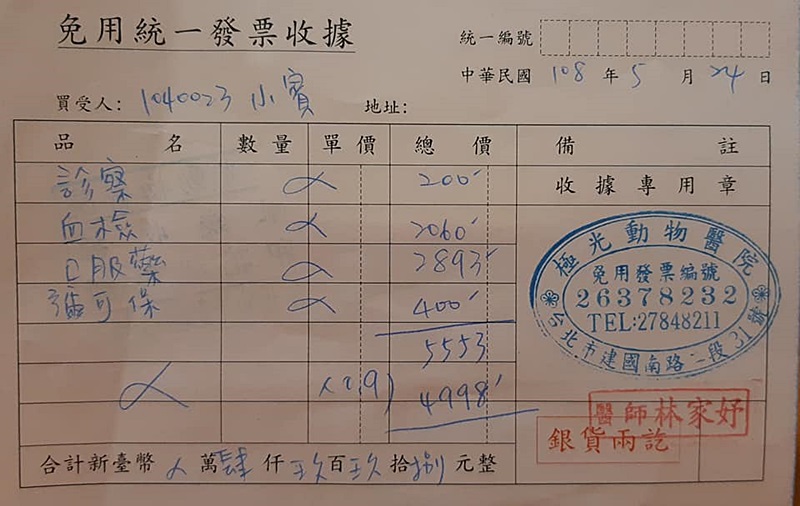 免用統一發票收據
統一編號
中華民國 108 年 5 月 24 日
買受人: 1040023 小賓 地址:
品名 數量 單價 總價 備註
診察 200
收據專用章
血檢 2060
口服藥 2893
彌可保 400
5553
x0.9) 4998
極光動物醫院
免用發票編號
26378232
TEL:27848211
台北市建國南路二段31號
醫師林家妤
銀貨兩訖
合計新臺幣 萬肆仟玖百玖拾捌元整